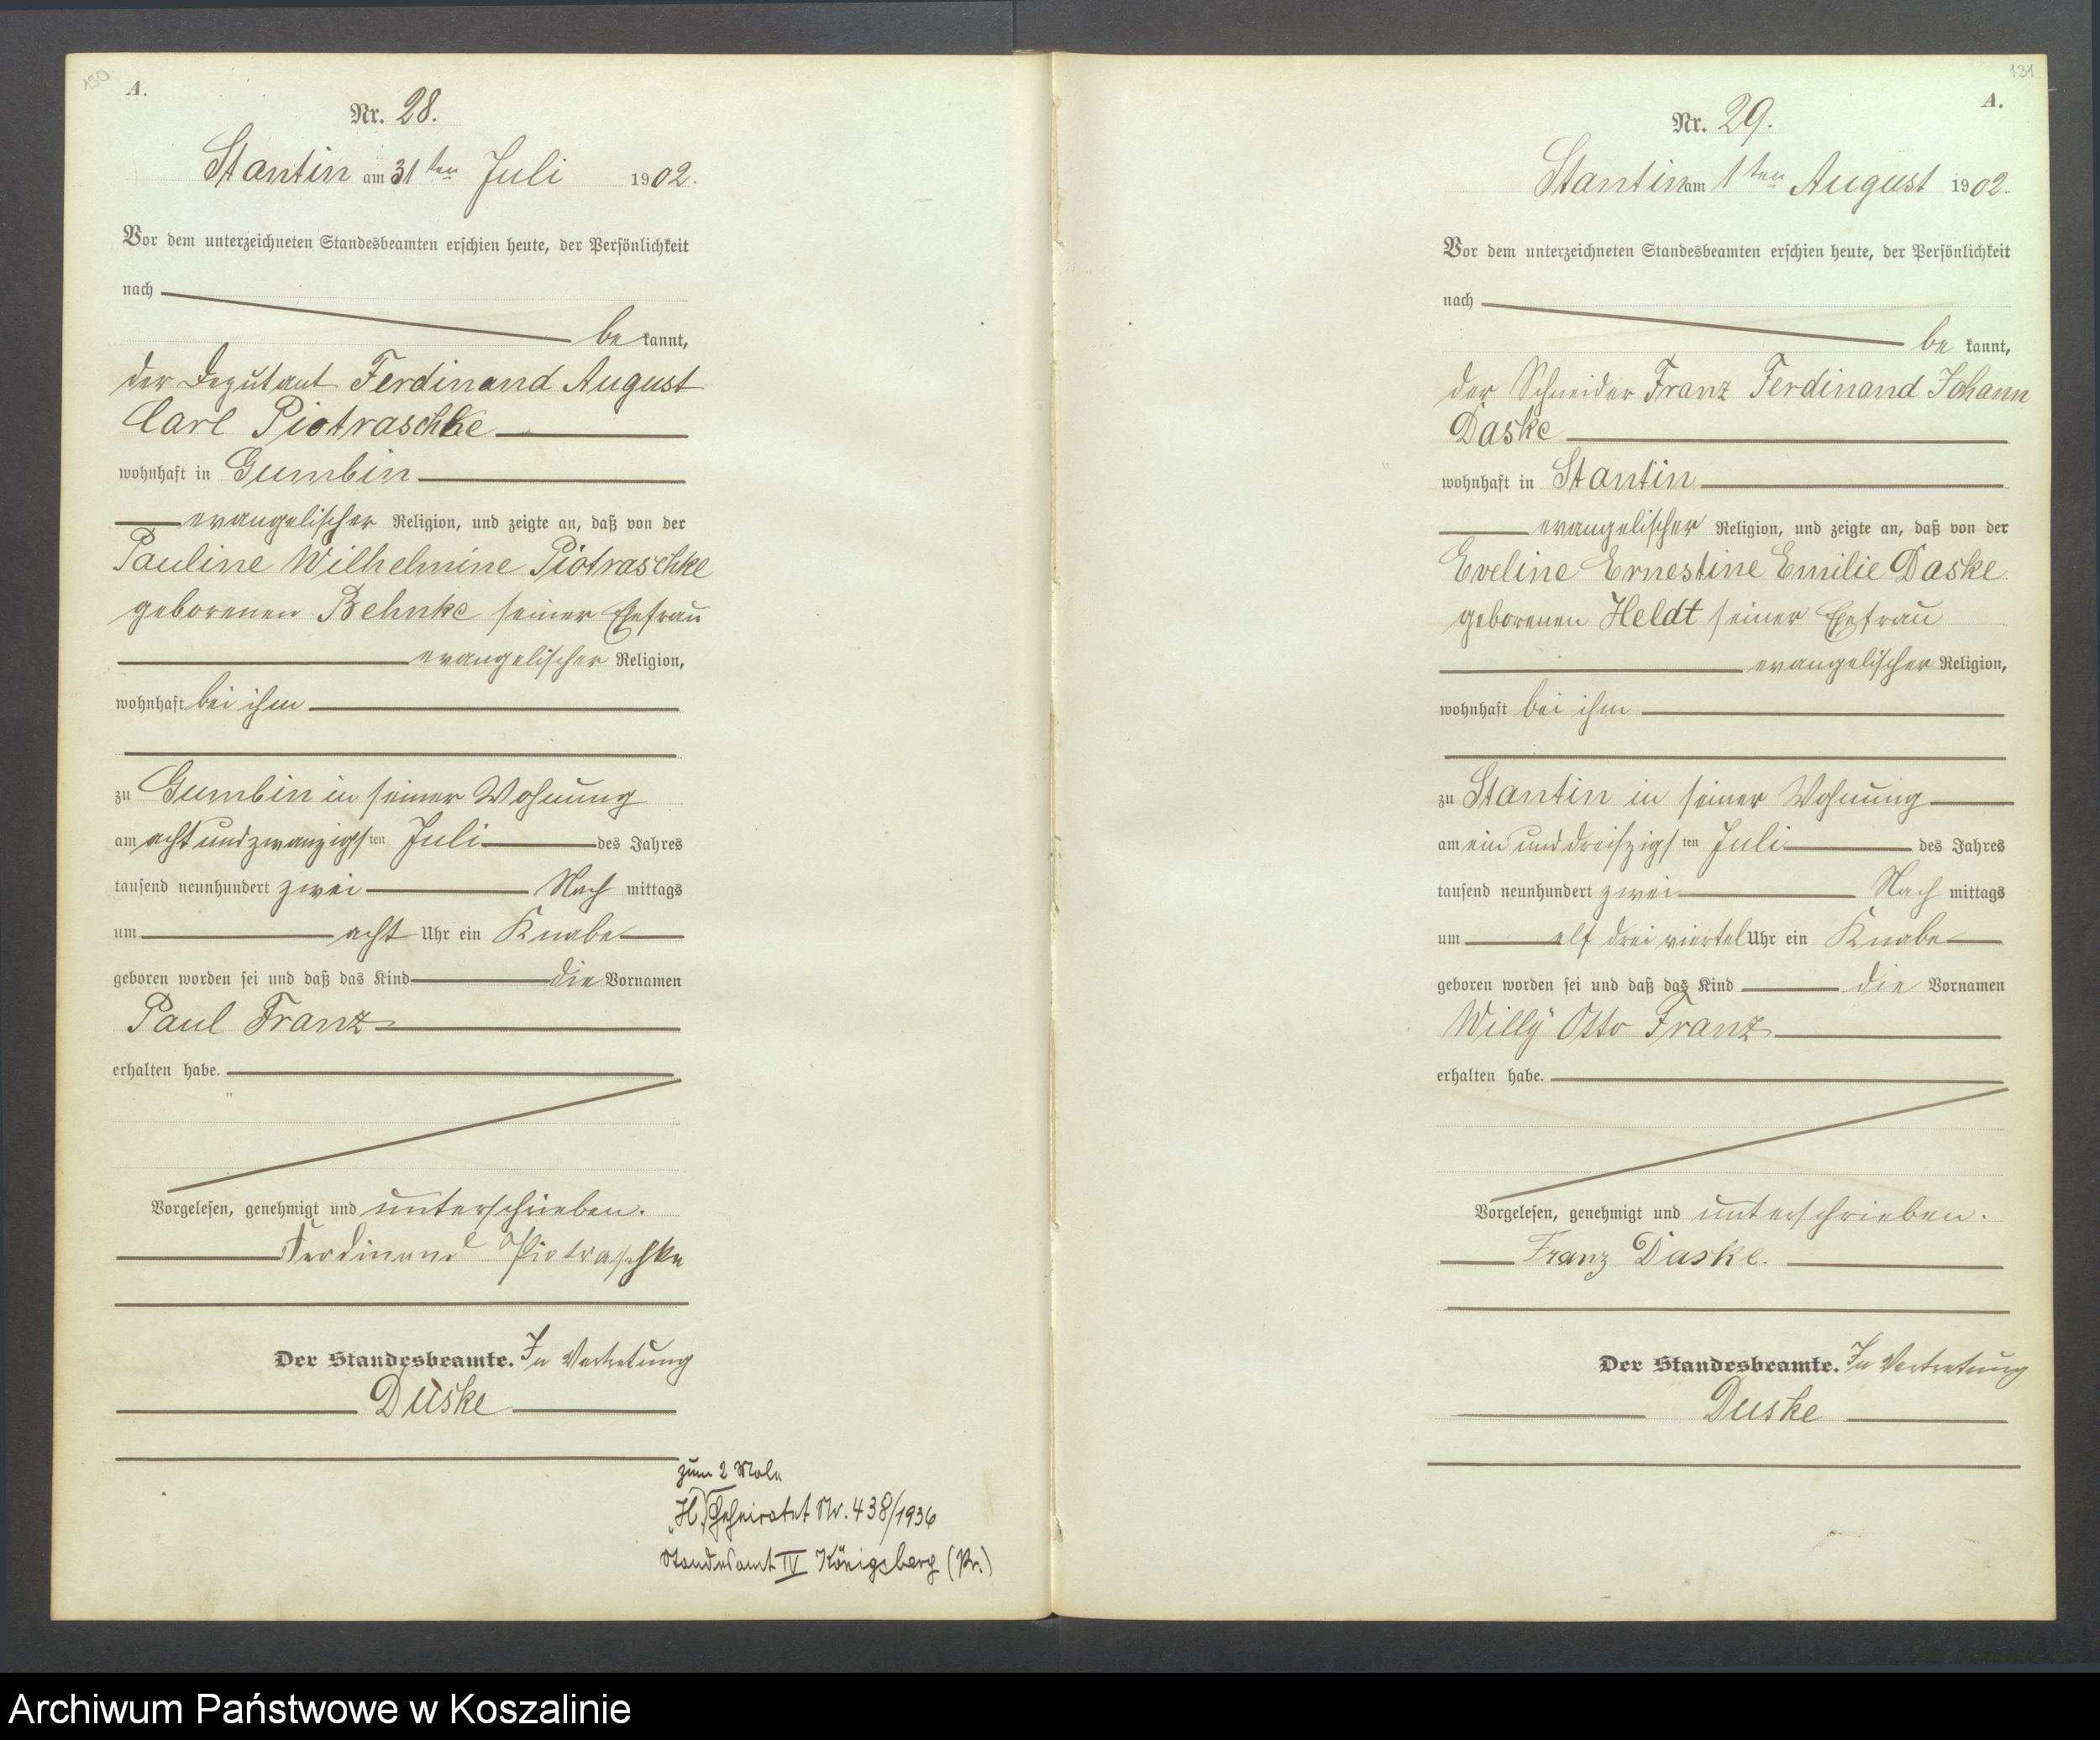 130
A.
Nr. 28.
Stantin am 31ten Juli 1902.
Vor dem unterzeichneten Standesbeamten erschien heute, der Persönlichkeit
nach
be kannt,
der Deputant Ferdinand August
Carl Piotraschke
wohnhaft in Gumbin
evangelischer Religion, und zeigte an, daß von der
Pauline Wilhelmine Piotraschke
geborenen Behnke seiner Ehefrau
evangelischer Religion,
wohnhaft bei ihm
zu Gumbin in seiner Wohnung
am acht und zwanzigsten Juli des Jahres
tausend neunhundert zwei Nach mittags
um acht Uhr ein Knabe
geboren worden sei und daß das Kind die Vornamen
Paul Franz
erhalten habe.
Vorgelesen, genehmigt und unterschrieben.
Ferdinand Piotraschke
Der Standesbeamte. In Vertretung
Düske
zum 2 Male
"H." Geheiratet Nr. 438/1936
Standesamt IV Königsberg (Pr.)
131
A.
Nr. 29.
Stantin am 1ten August 1902.
Vor dem unterzeichneten Standesbeamten erschien heute, der Persönlichkeit
nach
be kannt,
der Schneider Franz Ferdinand Johann
Daske
wohnhaft in Stantin
evangelischer Religion, und zeigte an, daß von der
Eveline Ernestine Emilie Daske
geborenen Heldt seiner Ehefrau
evangelischer Religion,
wohnhaft bei ihm
zu Stantin in seiner Wohnung
am ein und dreiszigsten Juli des Jahres
tausend neunhundert zwei Nach mittags
um elf drei viertel Uhr ein Knabe
geboren worden sei und daß das Kind die Vornamen
Willy Otto Franz
erhalten habe.
Vorgelesen, genehmigt und unterschrieben.
Franz Daske.
Der Standesbeamte. In Vertretung
Duske
Archiwum Państwowe w Koszalinie